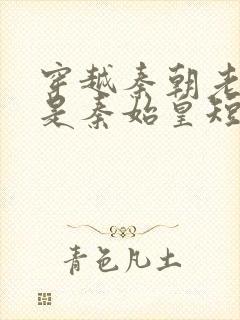 穿越秦朝老
是秦始皇短
青色凡土